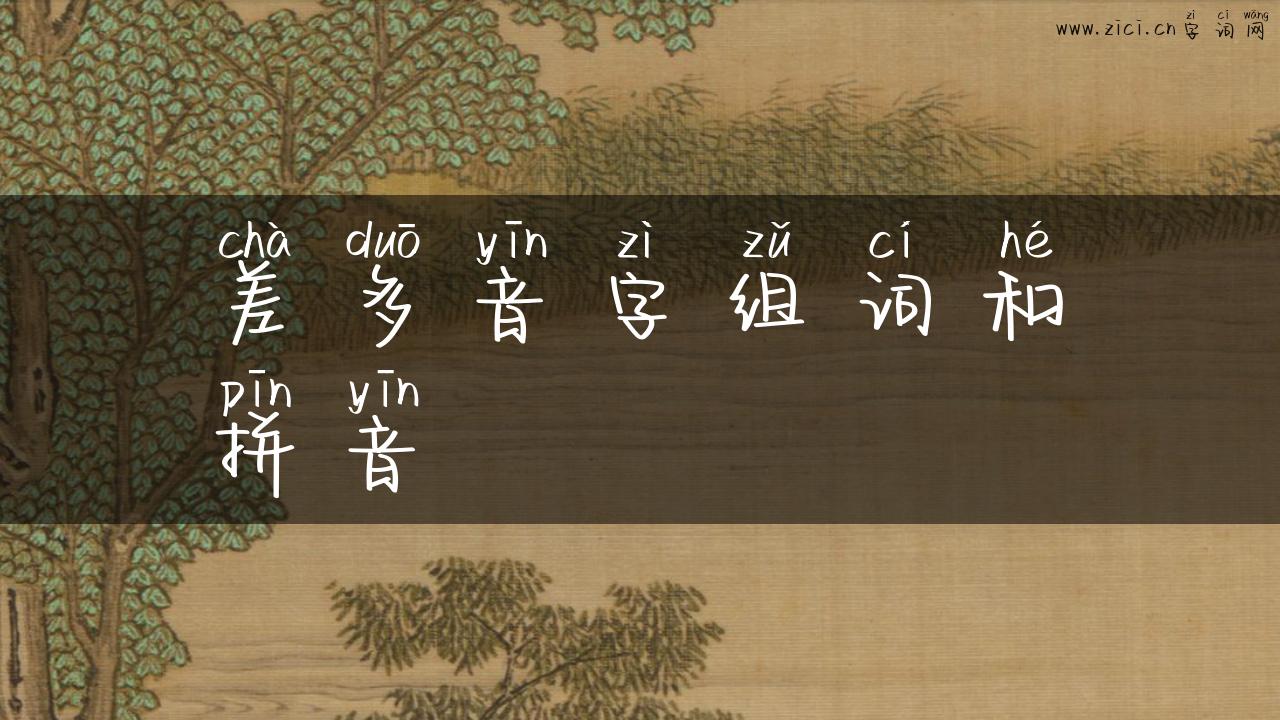 zì cí wǎng
www.zici.cn字词网
chà duō yīn zì zǔ cí hé
差多音字组词和
pīn yīn
拼音